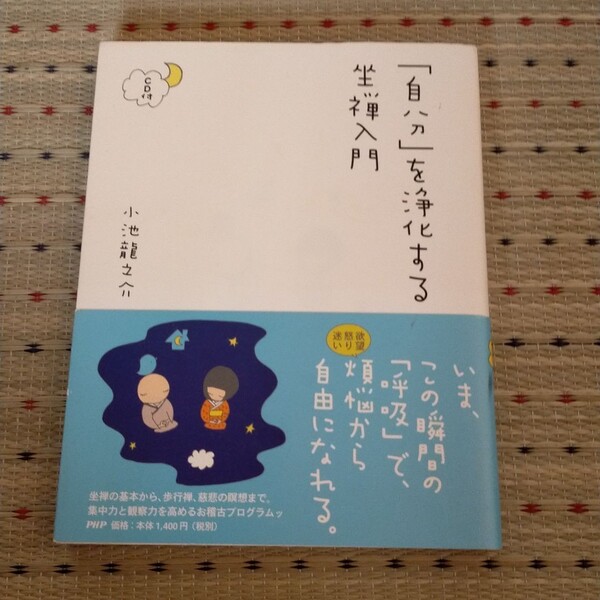 「自分」を浄化する
坐禅入門
CD付
小池龍之介
いま、
この瞬間の
「呼吸」で、
欲望
怒り
迷い
煩悩から
自由になれる。
坐禅の基本から、歩行禅、慈悲の瞑想まで。
集中力と観察力を高めるお稽古プログラムッ
PHP 価格：本体1,400円（税別）